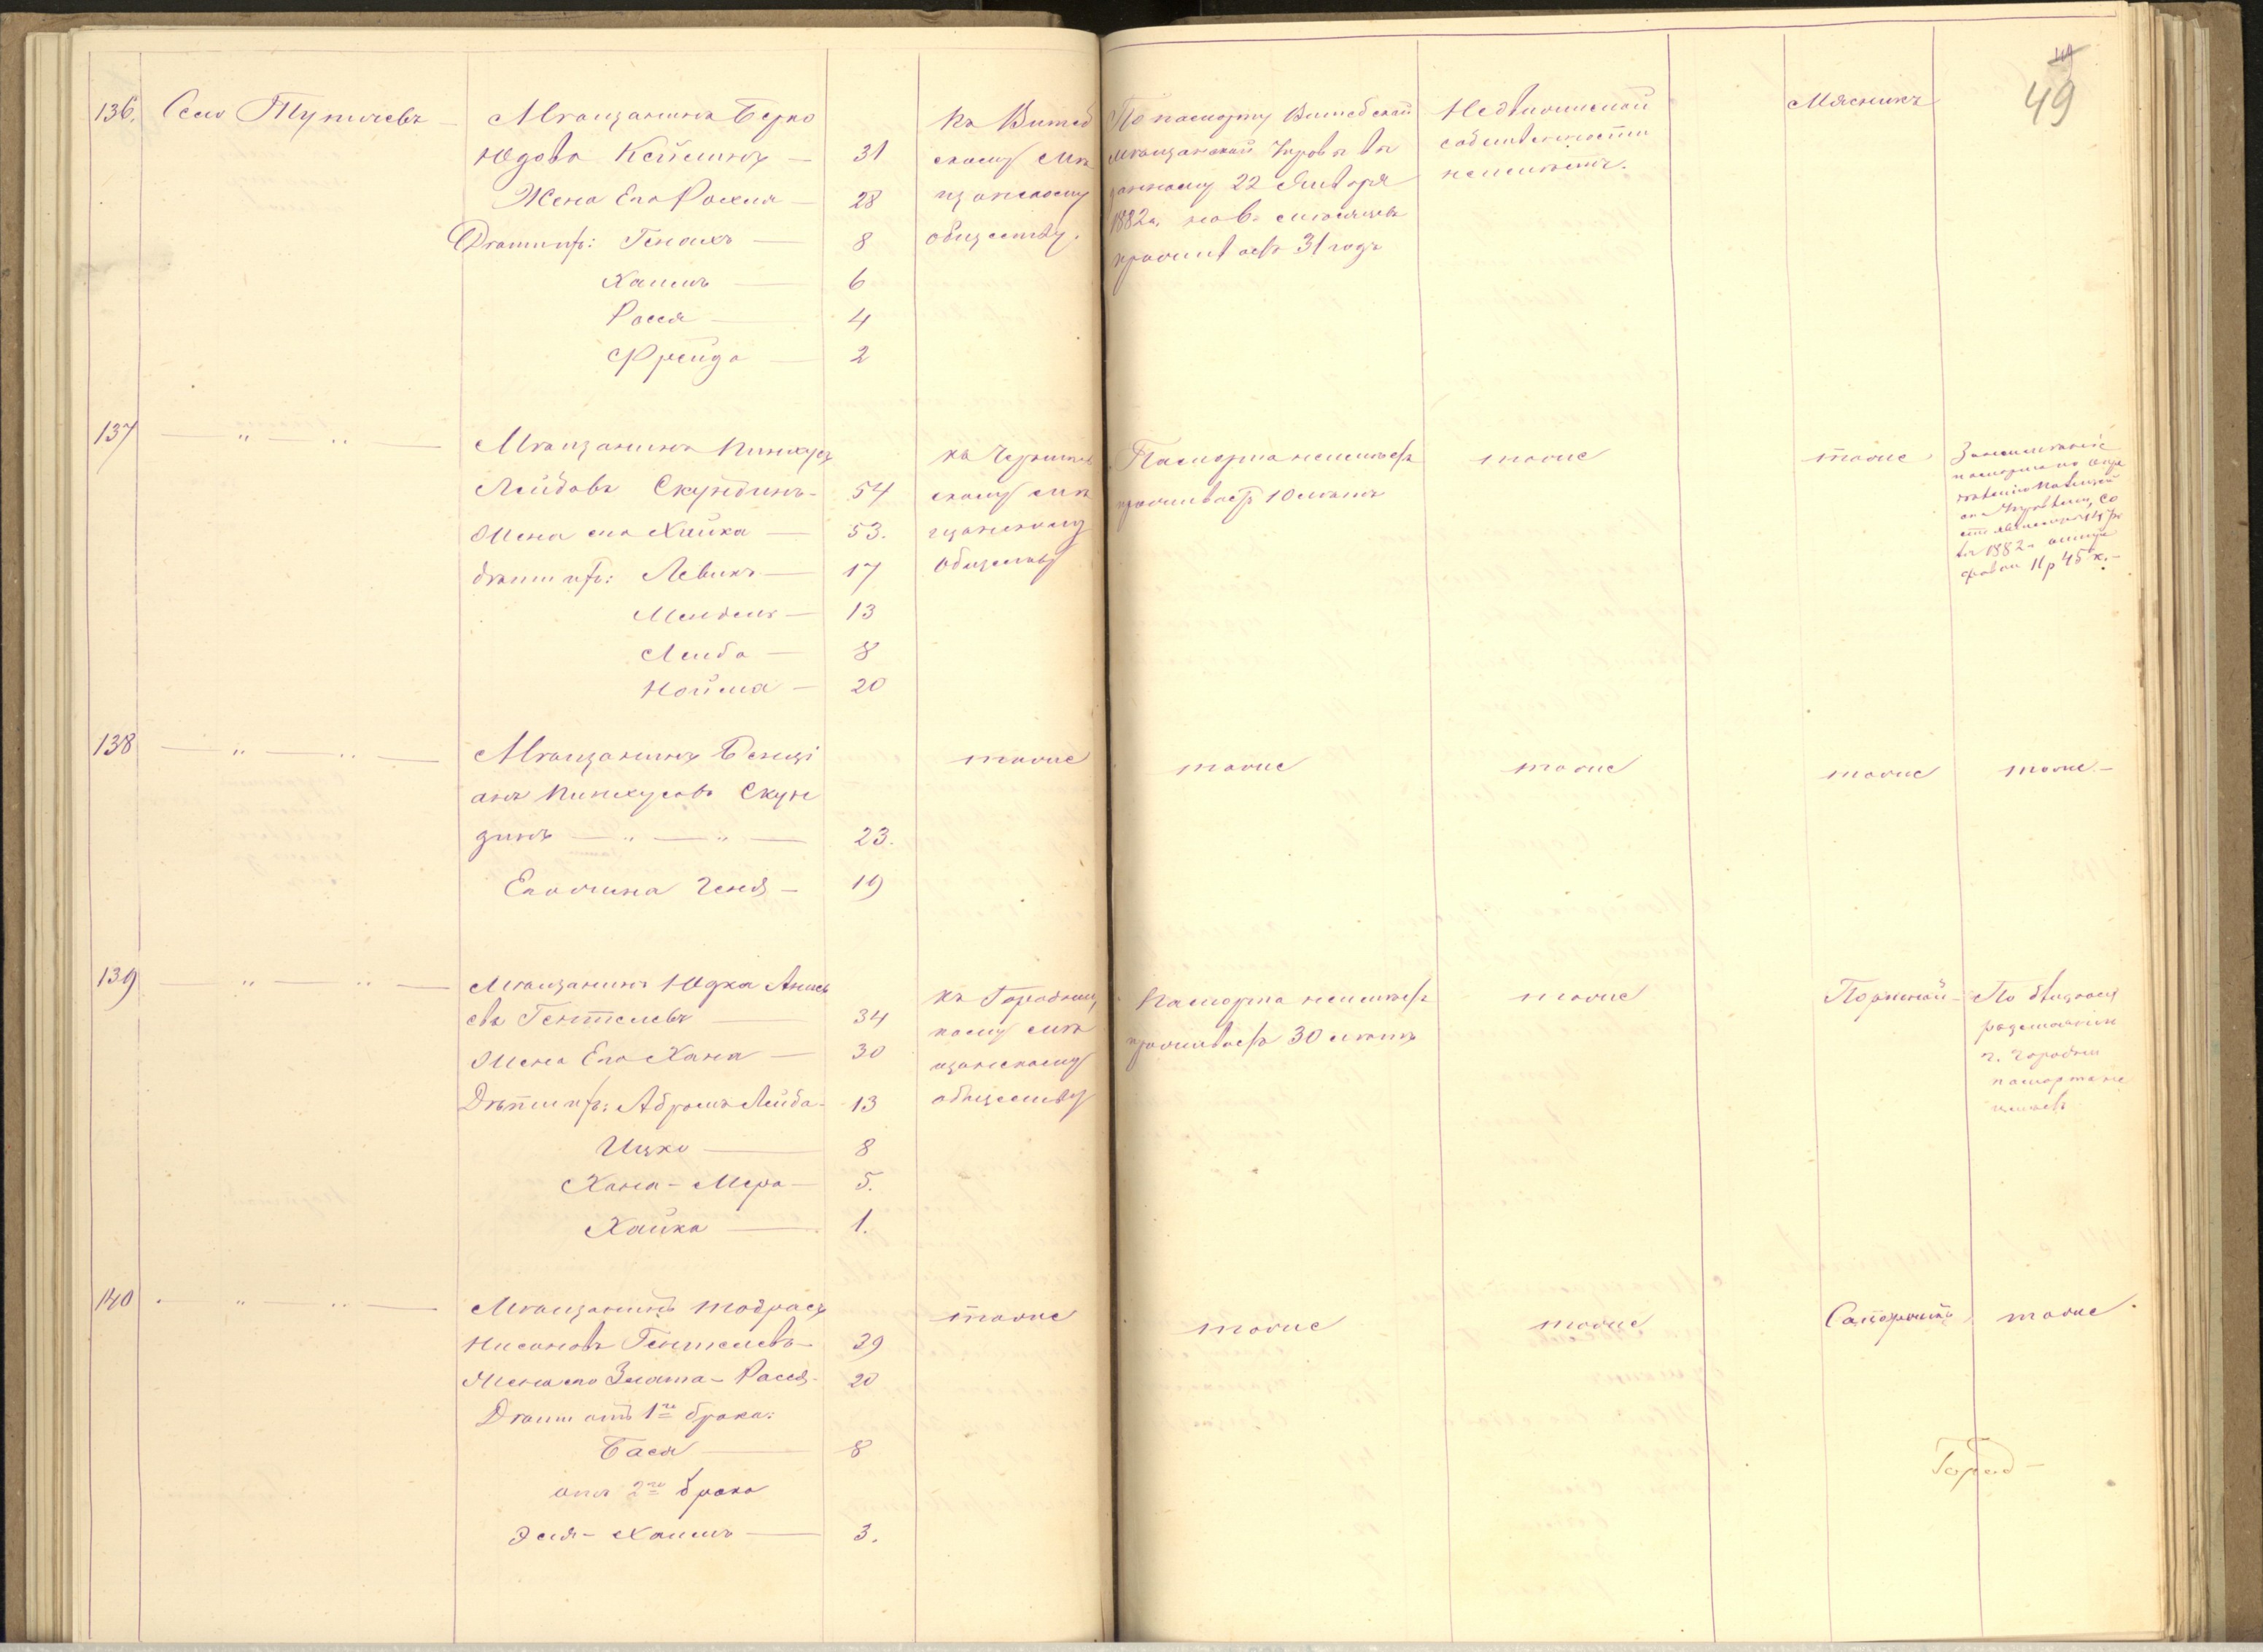 49
136. Село Тупичевъ
Мѣщанинъ Берко
Юдовъ Кейминъ — 31
Жена Его Рохля — 28
Дѣти ихъ: Генахъ — 8
Хаимъ — 6
Рося — 4
Фрейда — 2
Къ Витеб
скому мѣ
щанскому
обществу.
По паспорту Витебской
мѣщанской Управы вы
данному 22 Января
1882 г. на 6 мѣсяцевъ
проживаетъ 31 годъ
Недвижимой
собственности
неимѣетъ.
Мясникъ
137 — " — " —
Мѣщанинъ Пинхусъ
Лейбовъ Скундинъ — 54
Жена его Хайка — 53.
дѣти ихъ: Левикъ — 17
Мендель — 13
Лейба — 8
Нойма — 20
къ Черниг
скому мѣ
щанскому
обществу
Паспорта неимѣетъ
проживаетъ 10 лѣтъ
тоже
тоже
За неимѣніе
паспорта по
въ 1882 г. оштра
фованъ 11 р 45 к. —
138 — " — " —
Мѣщанинъ Бенці
анъ Пинхусовъ Скун
динъ — " — " — 23.
Его жена Геня — 19
тоже
тоже
тоже
тоже
тоже. —
139 — " — " —
Мѣщанинъ Юдка
евъ Гентелевъ — 34
Жена Его Ханя — 30
Дѣти ихъ: Абрамъ Лейба — 13
Ицко — 8
Хана - Мера — 5.
Хайка — 1.
къ Городниц
кому мѣ
щанскому
обществу
Паспорта неимѣетъ
проживаетъ 30 лѣтъ
тоже
Портной —
По
г. Городни
паспорта не
имѣетъ
140 — " — " —
Мѣщанинъ Тодрасъ
Нисоновъ Гентелевъ — 29
Жена его Злата - Рася — 20
Дѣти отъ 1го брака:
Бася — 8
отъ 2го брака
Эля - Хаимъ — 3.
тоже
тоже
тоже
Сапожникъ
тоже
Город —